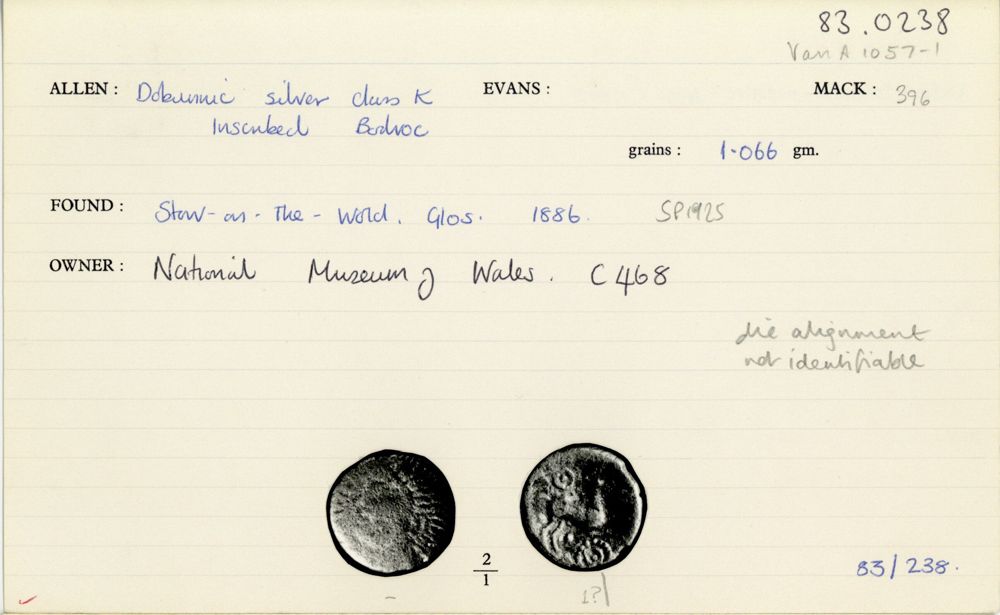 83.0238
Van A 1057-1
ALLEN: Dobunnic silver class K EVANS: MACK: 396
Inscribed Bodvoc
grains: 1.066 gm.
FOUND: Stow-on-the-Wold. Glos. 1886. SP1925
OWNER: National Museum of Wales. C 468
die alignment
not identifiable
2
1
- 1?
83/238.